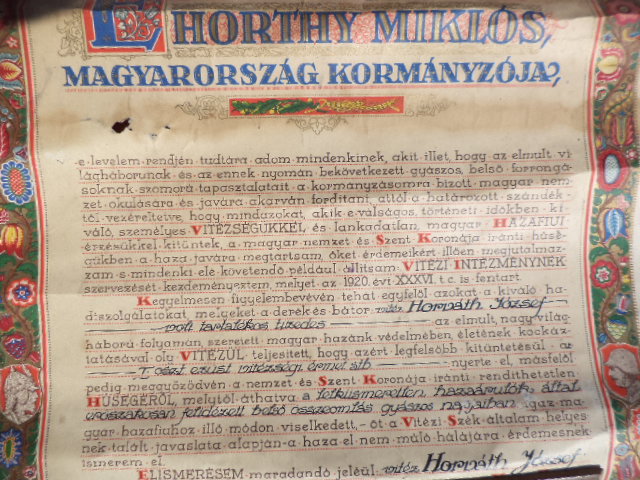 HORTHY MIKLÓS,
MAGYARORSZÁG KORMÁNYZÓJA,
e levelem rendjén tudtára adom mindenkinek, akit illet, hogy az elmult vi-
lágháborunak és az ennek nyomán bekövetkezett gyászos, belső forrongá-
soknak szomorú tapasztalatait a kormányzásomra bízott magyar nem-
zet okulására és javára akarván fordítani, attól a határozott szándék-
tól vezéreltetve, hogy mindazokat, akik e válságos, történeti időkben ki-
váló, személyes VITÉZSÉGÜKKEL és lankadatlan, magyar HAZAFIUI
érzésükkel kitüntek, a magyar nemzet és Szent Koronája iránti hűsé-
gükben a haza javára megtartsam, őket érdemeikért illően megjutalmaz-
zam s mindenki elé követendő például állitsam: VITÉZI INTÉZMÉNYNEK
szervezését kezdeményeztem, melyet az 1920. évi XXXVI. t.c. is fentart.
Kegyelmesen figyelembevévén tehát egyfelől azokat a kiváló ha-
diszolgálatokat, melyeket a derék és bátor vitéz Horváth József
volt tartalékos tizedes az elmult, nagy világ-
háború folyamán, szeretett magyar hazánk védelmében, életének kockáz-
tatásával oly VITÉZÜL teljesitett, hogy azért legfelsőbb kitüntetésül az
I. oszt. ezüst vitézségi érmet stb nyerte el, másfelől
pedig meggyőződvén a nemzet és Szent Koronája iránti rendíthetetlen
HŰSÉGÉRŐL, melytől áthatva a lelkiismeretlen, hazaárulók által
erőszakosan felidézett belső összeomlás gyászos napjaiban igaz ma-
gyar hazafiahoz illő módon viselkedett, – őt a Vitézi Szék általam helyes-
nek talált javaslata alapján a haza el nem múló hálájára érdemesnek
ismerem el.
ELISMERÉSEM maradandó jeléül vitéz Horváth József